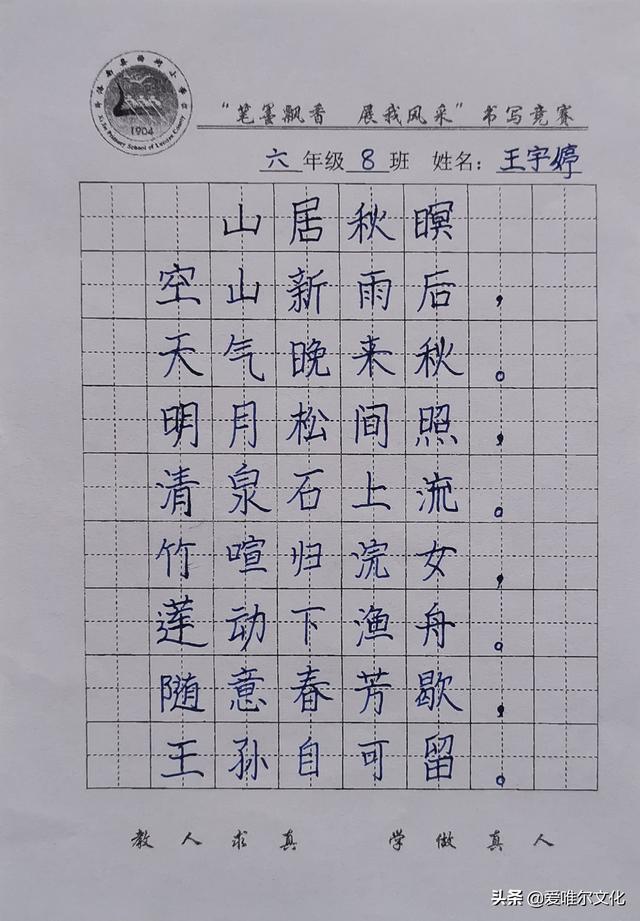 1904
“笔墨飘香 展我风采”书写竞赛
六年级8班 姓名：王宇婷
山居秋暝
空山新雨后，
天气晚来秋。
明月松间照，
清泉石上流。
竹喧归浣女，
莲动下渔舟。
随意春芳歇，
王孙自可留。
教人求真 学做真人
头条 @爱唯尔文化